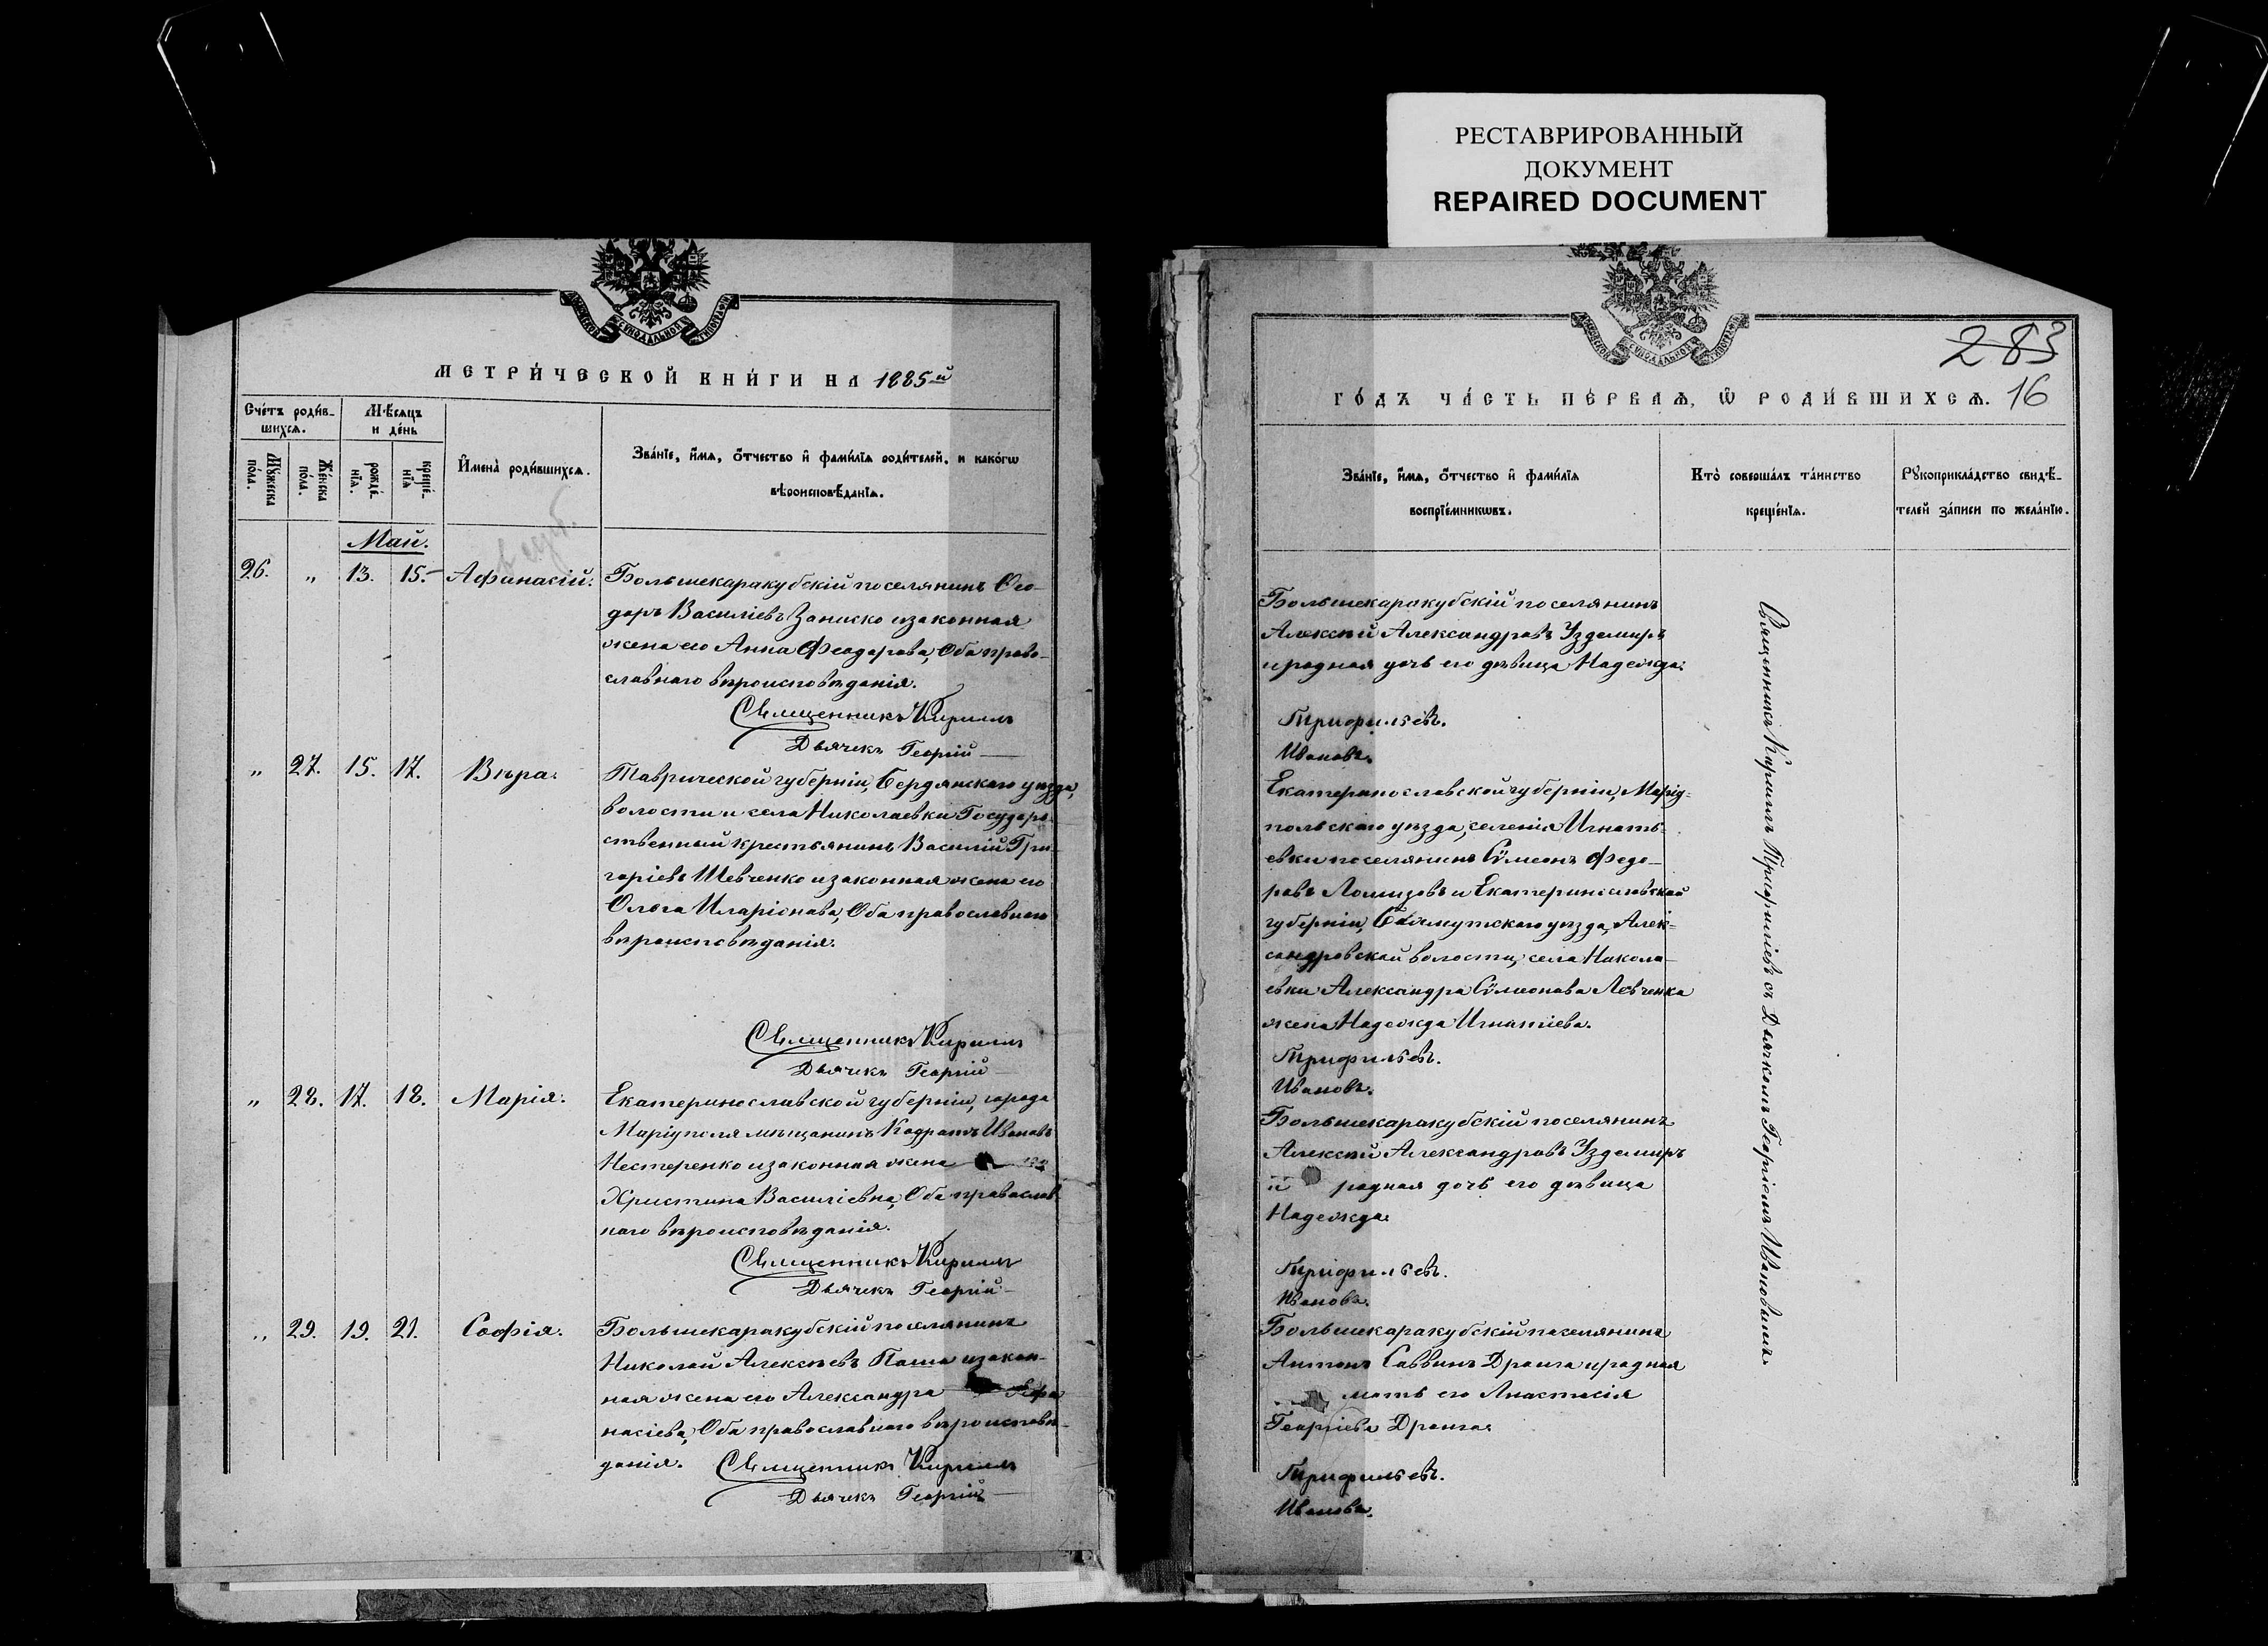 РЕСТАВРИРОВАННЫЙ
ДОКУМЕНТ
REPAIRED DOCUMENT
МЕТРИ́ЧЕСКОЙ КНИ́ГИ НА 1885й
Сче́тъ роди́в-
шихсѧ.
Мѣ́сѧцъ
и де́нь
Мꙋ́жеска
по́ла.
Же́нска
по́ла.
рожде́-
нїѧ.
креще́-
нїѧ
И҆мена̀ роди́вшихсѧ.
Зва́нїе, и҆́мѧ, ѻ҆́тчество и҆ фами́лїѧ роди́телей, и како́гѡ
вѣроисповѣ́данїѧ.
Май.
26. „ 13. 15. Афанасій.
Большекаракубскій поселянинъ Ѳео-
доръ Василіевъ Заниско и законная
жена его Анна Феодорова, Оба право-
славнаго вѣроисповѣданія.
Священникъ Кириллъ
Дьячекъ Георгій
„ 27. 15. 17. Вѣра.
Таврической губерніи, Бердянскаго уѣзда,
волости и села Николаевки Государ-
ственный крестьянинъ Василій Гри-
горіевъ Шевченко и законная жена его
Ольга Иларіонова, Оба православнаго
вѣроисповѣданія.
Священникъ Кириллъ
Дьячекъ Георгій
„ 28. 17. 18. Марія.
Екатеринославской губерніи, города
Маріуполя мѣщанинъ Кодратъ Ивановъ
Нестеренко и законная жена
Христина Василіевна, Оба православ-
наго вѣроисповѣданія.
Священникъ Кириллъ
Дьячекъ Георгій
„ 29. 19. 21. Софія.
Большекаракубскій поселянинъ
Николай Алексѣевъ Паша и закон-
ная жена его Александра
насіева, Оба православнаго вѣроисповѣ-
данія.
Священникъ Кириллъ
Дьячекъ Георгій
283
ГО́ДЪ ЧА́СТЬ ПЕ́РВАѦ, Ѽ РОДИ́ВШИХСѦ. 16
Зва́нїе, и҆́мѧ, ѻ҆́тчество и҆ фами́лїѧ
воспрїе́мникѡвъ.
Кто̀ соверша́лъ та́инство
креще́нїѧ.
Рꙋкоприкла́дство свидѣ́-
телей за́писи по жела́нїю.
Большекаракубскій поселянинъ
Алексѣй Александровъ Уздемиръ
и родная дочь его дѣвица Надежда.
Трифильевъ.
Ивановъ.
Екатеринославской губерніи, Маріу-
польскаго уѣзда, селенія Игнать-
евки поселянинъ Сѵмеонъ Федо-
ровъ Ломизовъ и Екатеринославской
губерніи, Бахмутскаго уѣзда, Алек-
сандровской волости, села Никола-
евки Александра Сѵмеонова Левченка
жена Надежда Игнатіева.
Трифильевъ.
Ивановъ.
Большекаракубскій поселянинъ
Алексѣй Александровъ Уздемиръ
и родная дочь его дѣвица
Надежда.
Трифильевъ.
Ивановъ.
Большекаракубскій поселянинъ
Антонъ Саввинъ Дранга и родная
мать его Анастасія
Георгіева Дранга.
Трифильевъ.
Ивановъ.
Священникъ Кириллъ Трифиліевъ съ Дьячкомъ Георгіемъ Ивановымъ.